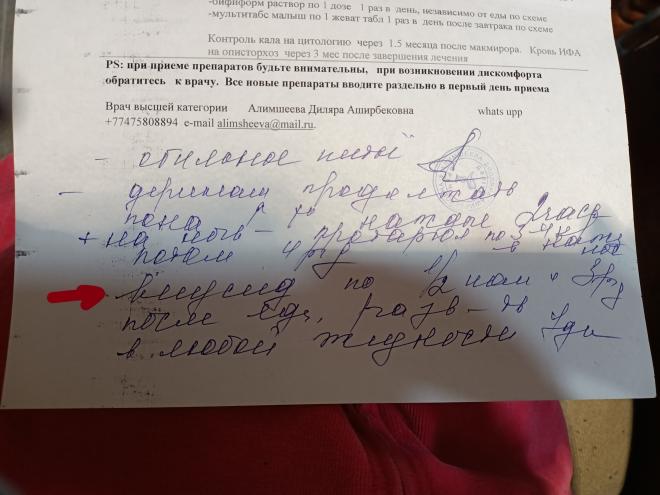 -бифиформ раствор по 1 дозе 1 раз в день, независимо от еды по схеме
-мультитабс малыш по 1 жеват табл 1 раз в день после завтрака по схеме
Контроль кала на цитологию через 1.5 месяца после макмирора. Кровь ИФА
на описторхоз через 3 мес после завершения лечения
PS: при приеме препаратов будьте внимательны, при возникновении дискомфорта
обратитесь к врачу. Все новые препараты вводите раздельно в первый день приема
Врач высшей категории Алимшеева Диляра Аширбековна whats upp
+77475808894 e-mail alimsheeva@mail.ru.
- обильное питьё
- продолжать
пока каждые 2 часа
+ на ночь - протаргол по 3-4 кап
потом 4 р/д
по 1/2 3 р/д
после еды, разв-ть
в любой жидкости 7 дн